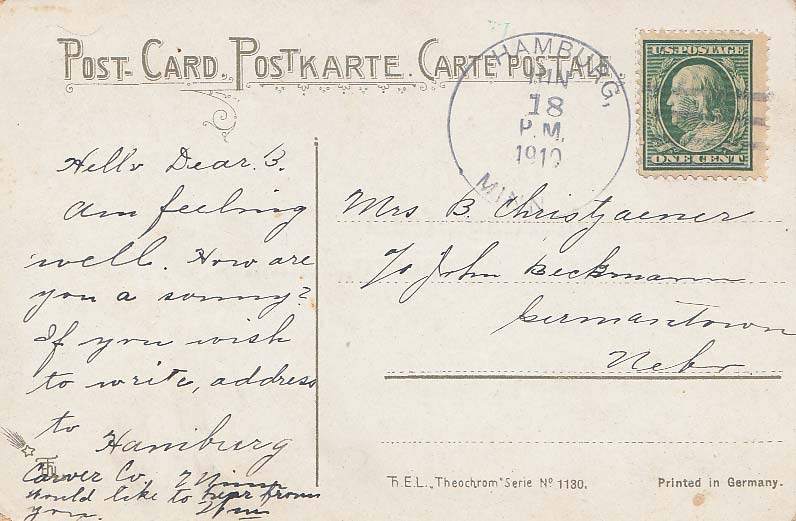 POST-CARD. POSTKARTE. CARTE POSTALE.
HAMBURG,
18
P.M.
1910
MINN
U.S. POSTAGE
ONE CENT
Hello Dear. B.
Am feeling
well. How are
you a sonny?
If you wish
to write, address
to Hamburg
Carver Co. Minn
would like to hear from
you.
Mrs B. Christgaener
c/o John Beckmann
Germantown
Nebr
T.H.E.L. „Theochrom" Serie Nº 1130.
Printed in Germany.